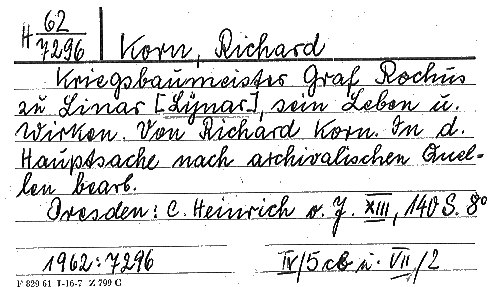 H 62/7296 Korn, Richard
Kriegsbaumeister Graf Rochus
zu Linar [Lynar], sein Leben u.
Wirken. Von Richard Korn. In d.
Hauptsache nach archivalischen Quel-
len bearb.
Dresden: C. Heinrich o. J. XIII, 140 S. 8°
1962:7296 IV/5 cb u. VII/2
F 829 61 I-16-7 Z 799 G